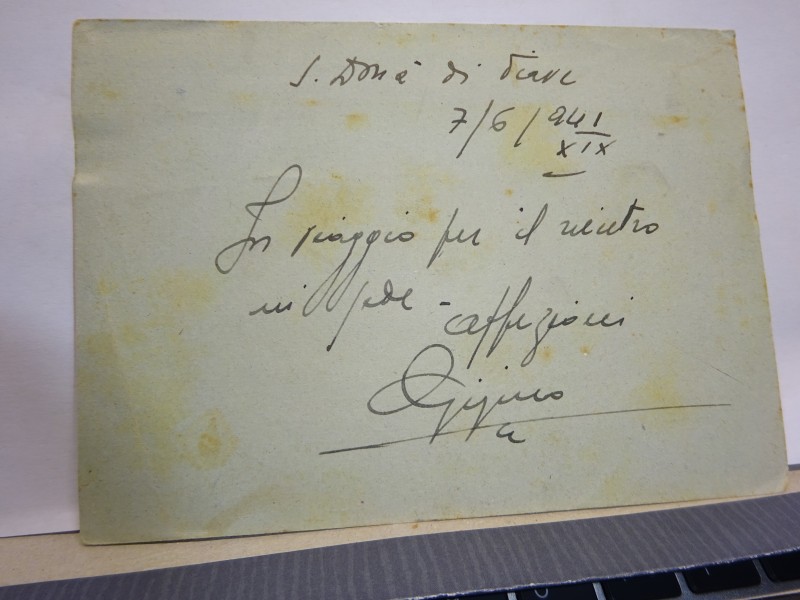 S. Donà di Piave
7/6/941
XIX
In viaggio per il rientro
in sede - affezioni
Gigino